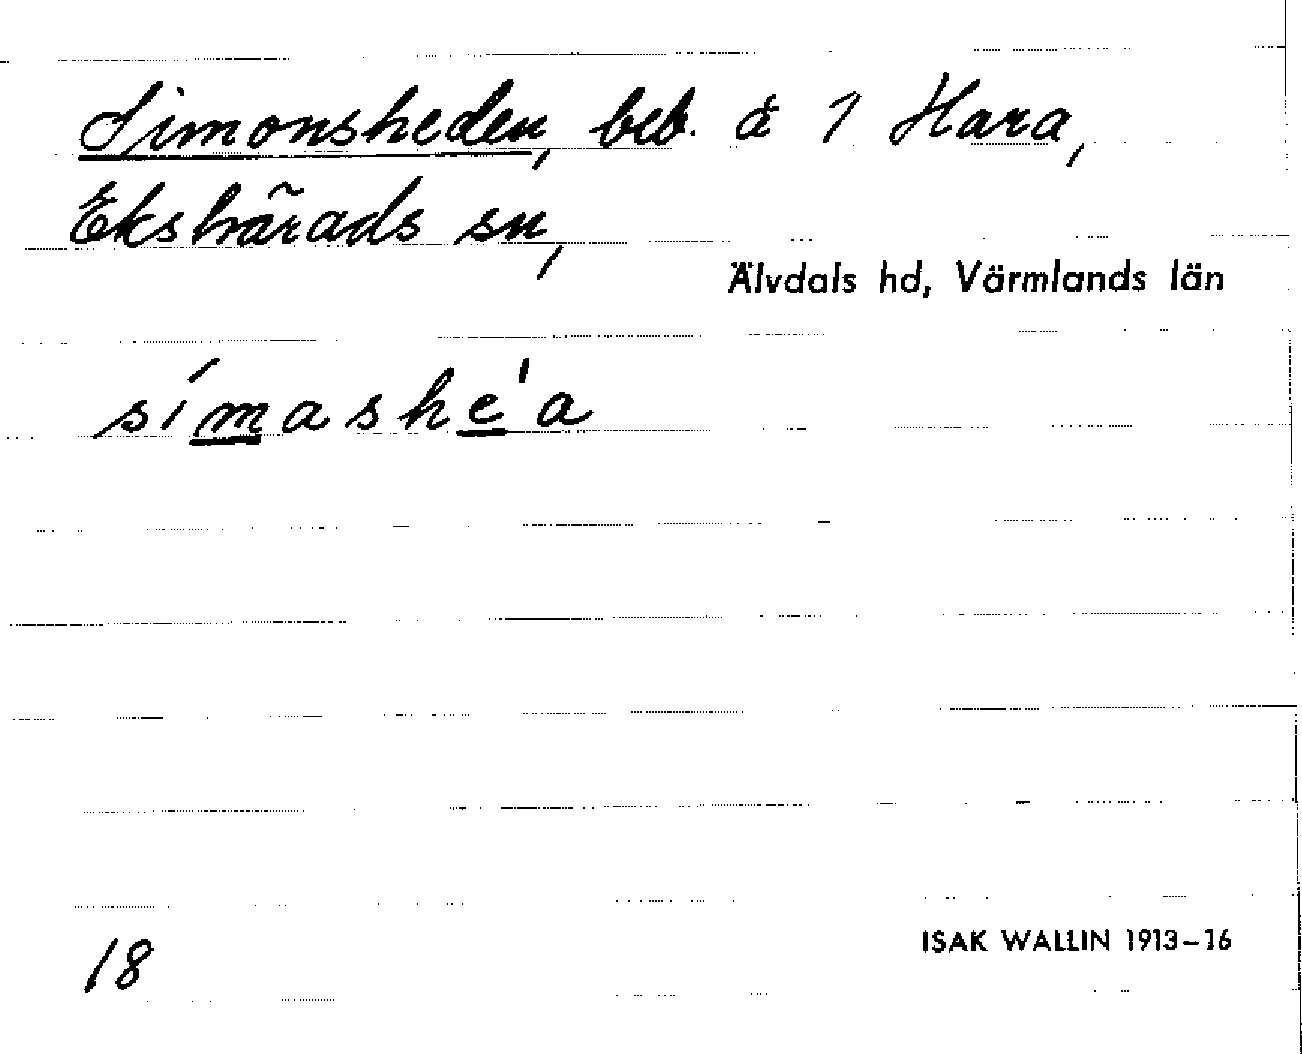 Simonsheden, beb. å 1 Hara,
Ekshärads sn,
Älvdals hd, Värmlands län
símashe'a
18
ISAK WALLIN 1913-16